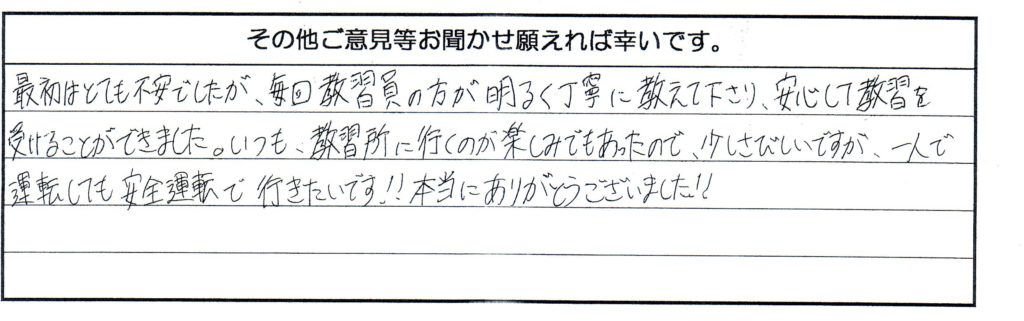 その他ご意見等お聞かせ願えれば幸いです。
最初はとても不安でしたが、毎回教習員の方が明るく丁寧に教えて下さり、安心して教習を
受けることができました。いつも、教習所に行くのが楽しみでもあったので、少しさびしいですが、一人で
運転しても安全運転で行きたいです!!本当にありがとうございました!!